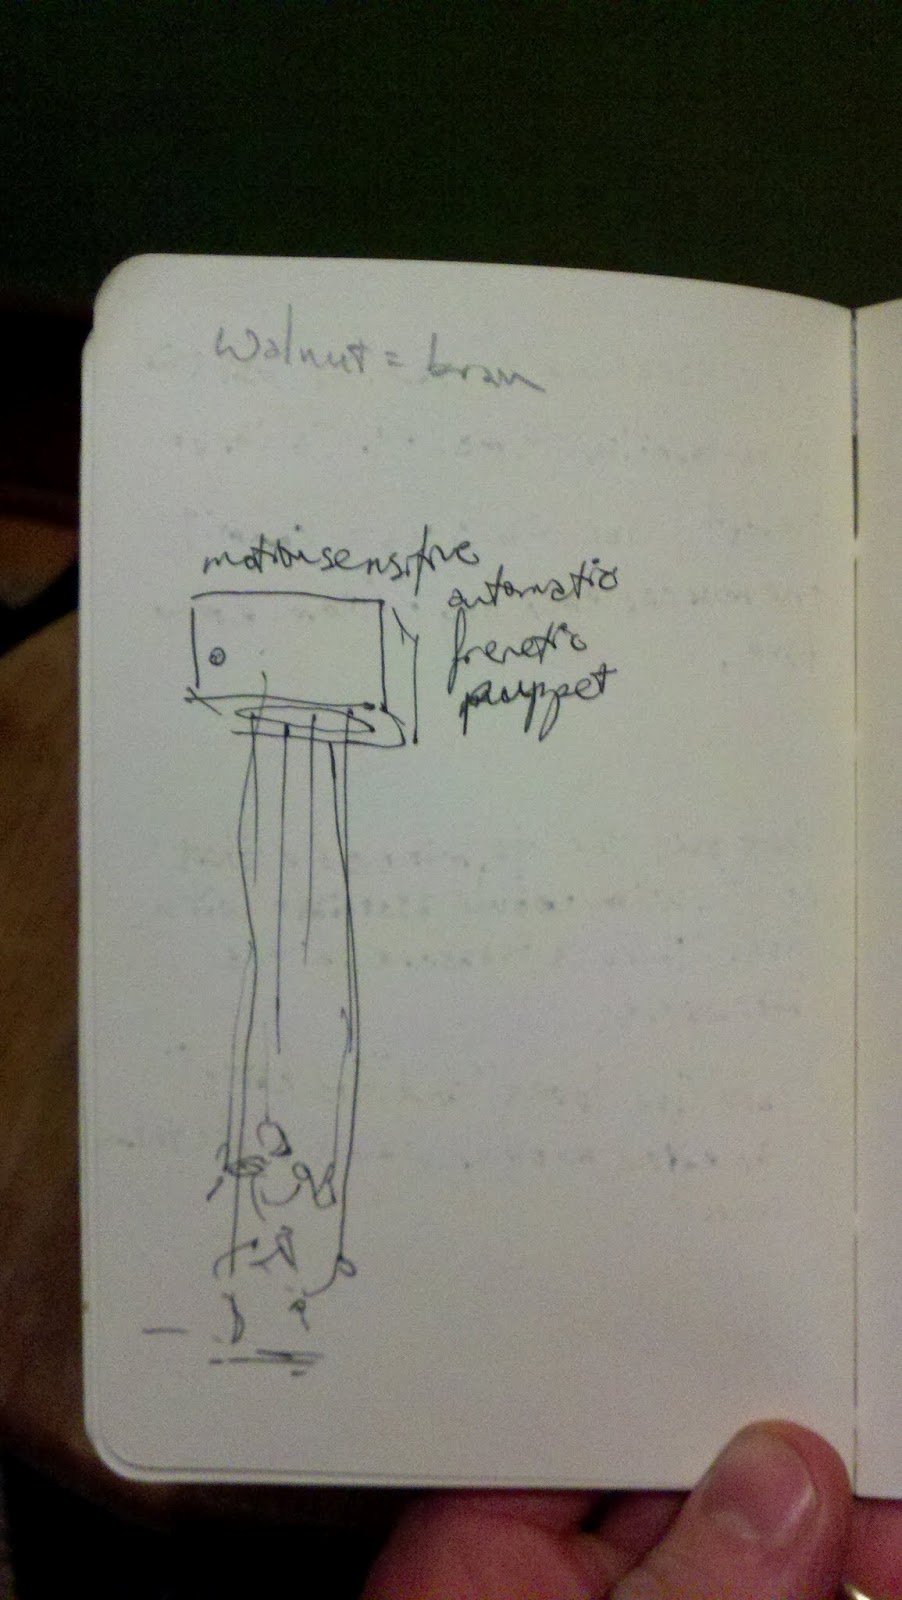 Walnut = brain
motion sensitive
automatic
frenetic
puppet